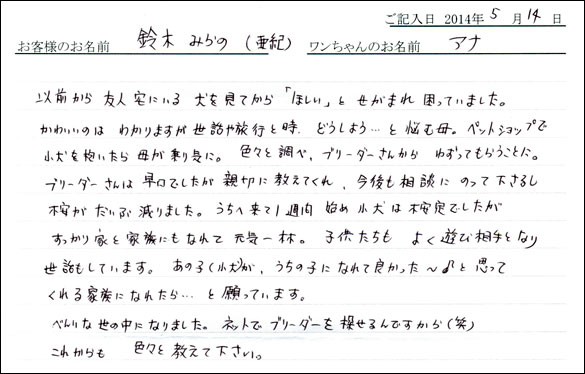 ご記入日 2014年 5 月 14 日
お客様のお名前 鈴木 みらの (亜紀) ワンちゃんのお名前 アナ
以前から 友人宅にいる 犬を見てから 「ほしい」と せがまれ 困っていました。
かわいいのは わかりますが 世話や旅行と時、どうしよう…と 悩む母。ペットショップで
小犬を抱いたら 母が乗り気に。 色々と調べ、ブリーダーさんから ゆずってもらうことに。
ブリーダーさんは 早口でしたが 親切に教えてくれ、今後も相談に のって下さるし
不安が だいぶ減りました。うちへ来て1週間 始め小犬は不安定でしたが
すっかり家と家族にもなれて 元気一杯。 子供たちも よく遊び相手となり
世話もしています。 あの子(小犬)が、うちの子になれて良かった〜♪と思って
くれる家族になれたら…と願っています。
べんりな世の中になりました。ネットでブリーダーを探せるんですから(笑)
これからも 色々と教えて下さい。